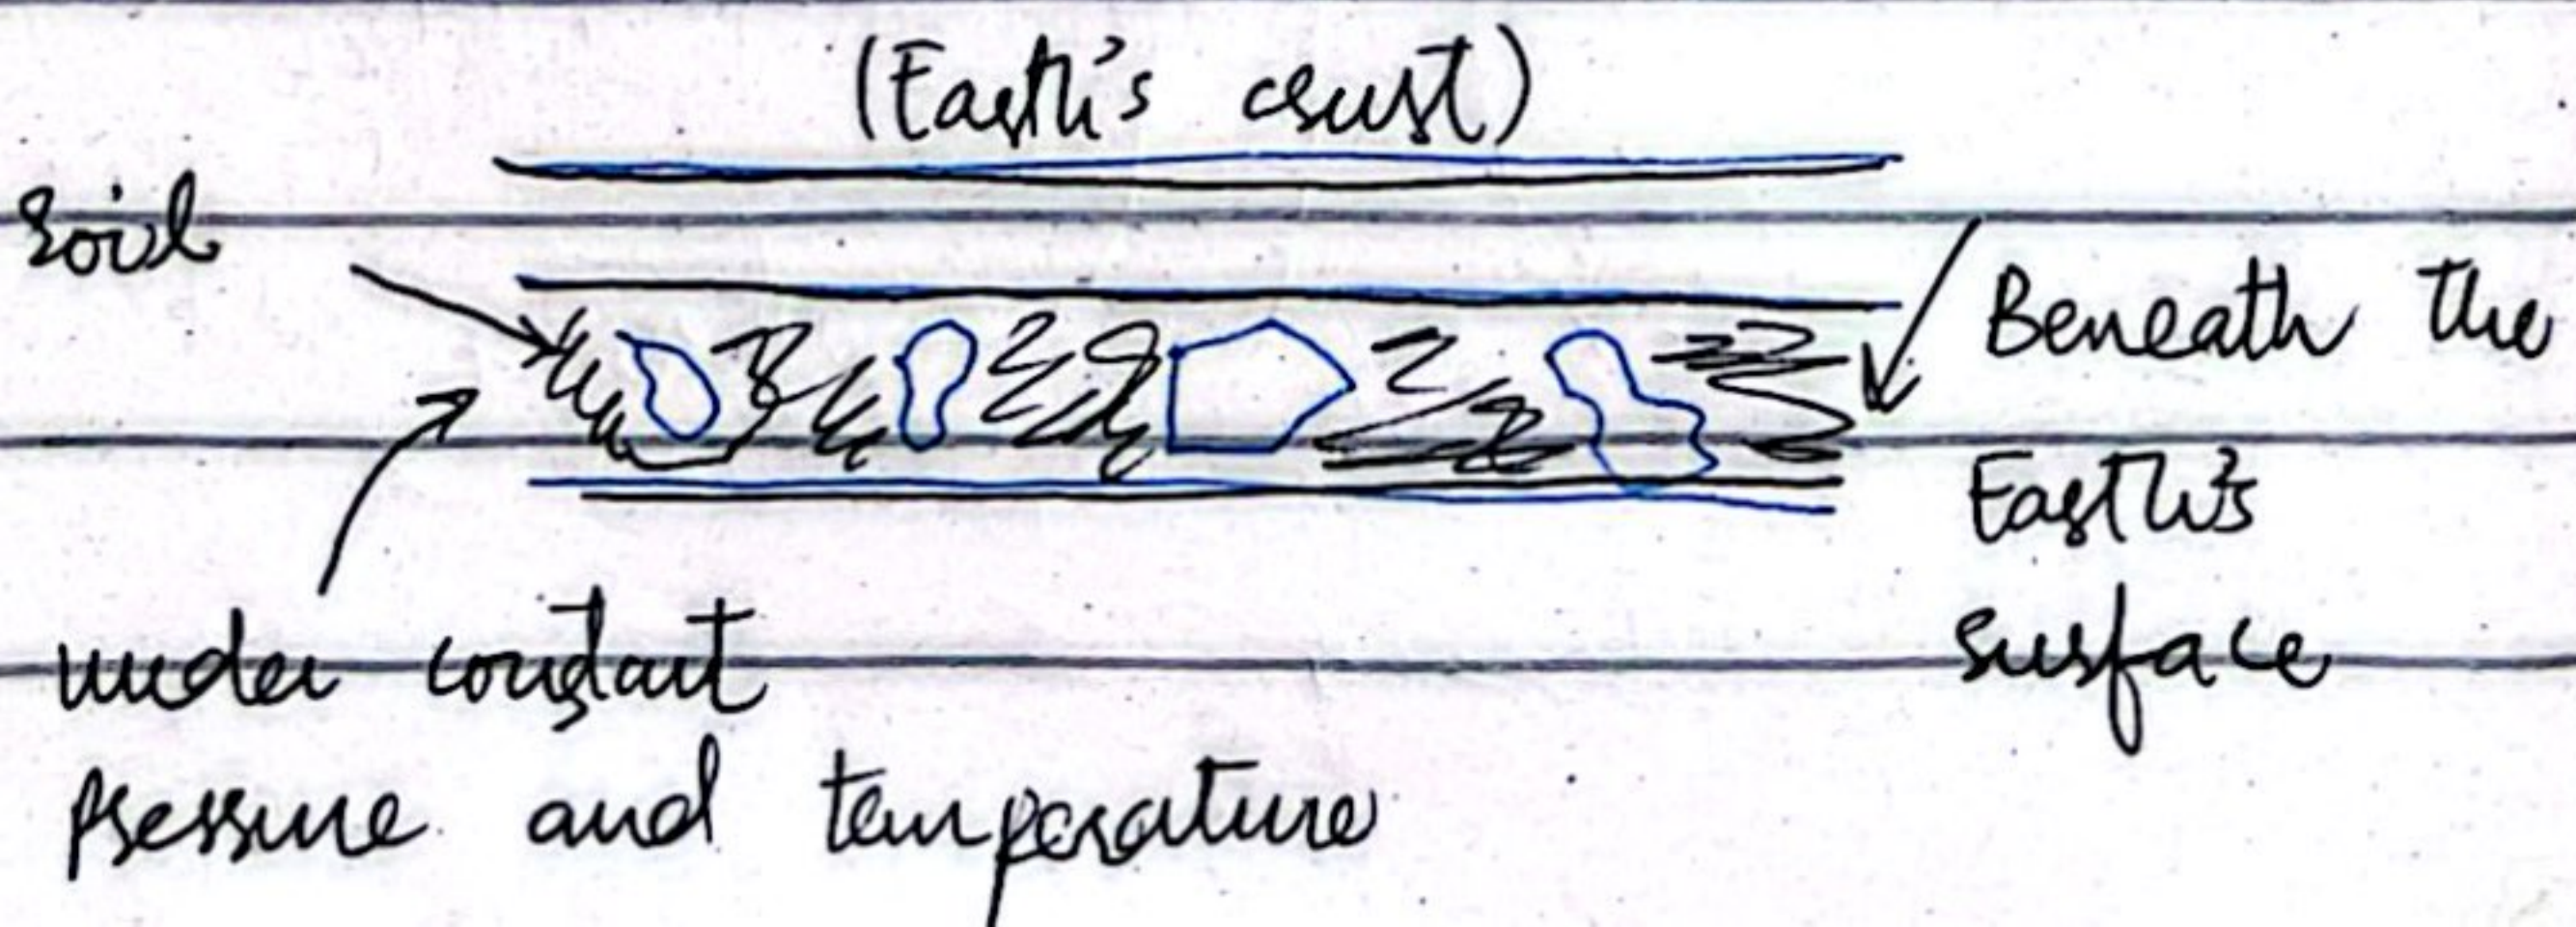 (Earth's crust)
Soil
Beneath the
Earth's
surface
under constant
pressure and temperature